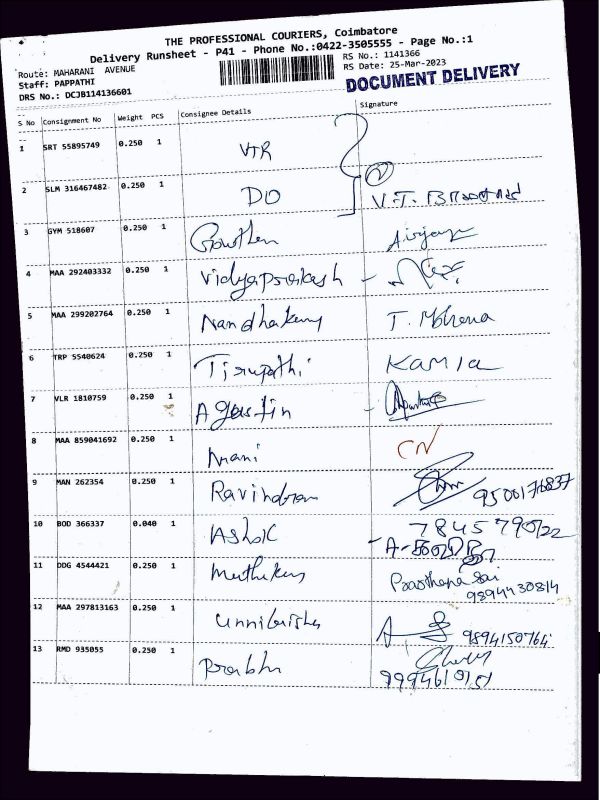 THE PROFESSIONAL COURIERS, Coimbatore
Delivery Runsheet - P41 - Phone No.:0422-3505555 - Page No.:1
Route: MAHARANI AVENUE
RS No.: 1141366
Staff: PAPPATHI
RS Date: 25-Mar-2023
DRS No.: DCJB114136601
DOCUMENT DELIVERY
S No Consignment No Weight PCS Consignee Details Signature
1 SRT 55895749 0.250 1 VTR
2 SLM 316467482 0.250 1 DO V.T.
3 GYM 518607 0.250 1 Gowthem
4 MAA 292403332 0.250 1 Vidyaprakash
5 MAA 299202764 0.250 1 Nandhakumy T. Mohena
6 TRP 5540624 0.250 1 Tirupathi Kamla
7 VLR 1810759 0.250 1 Agustin
8 MAA 859041692 0.250 1 Mani CN
9 MAN 262354 0.250 1 Ravindran
10 BOD 366337 0.040 1 Ashok
11 DDG 4544421 0.250 1 Muthukumy Prarthana Sai
9894430814
12 MAA 297813163 0.250 1 Unnikrishn 9894150764
13 RMD 935055 0.250 1 Prabhu